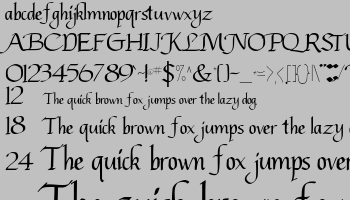 abcdefghijklmnopqrstuvwxyz
ABCDEFGHIJKLMNOPQRSTU
0123456789
12 The quick brown fox jumps over the lazy dog
18 The quick brown fox jumps over the lazy
24 The quick brown fox jumps over